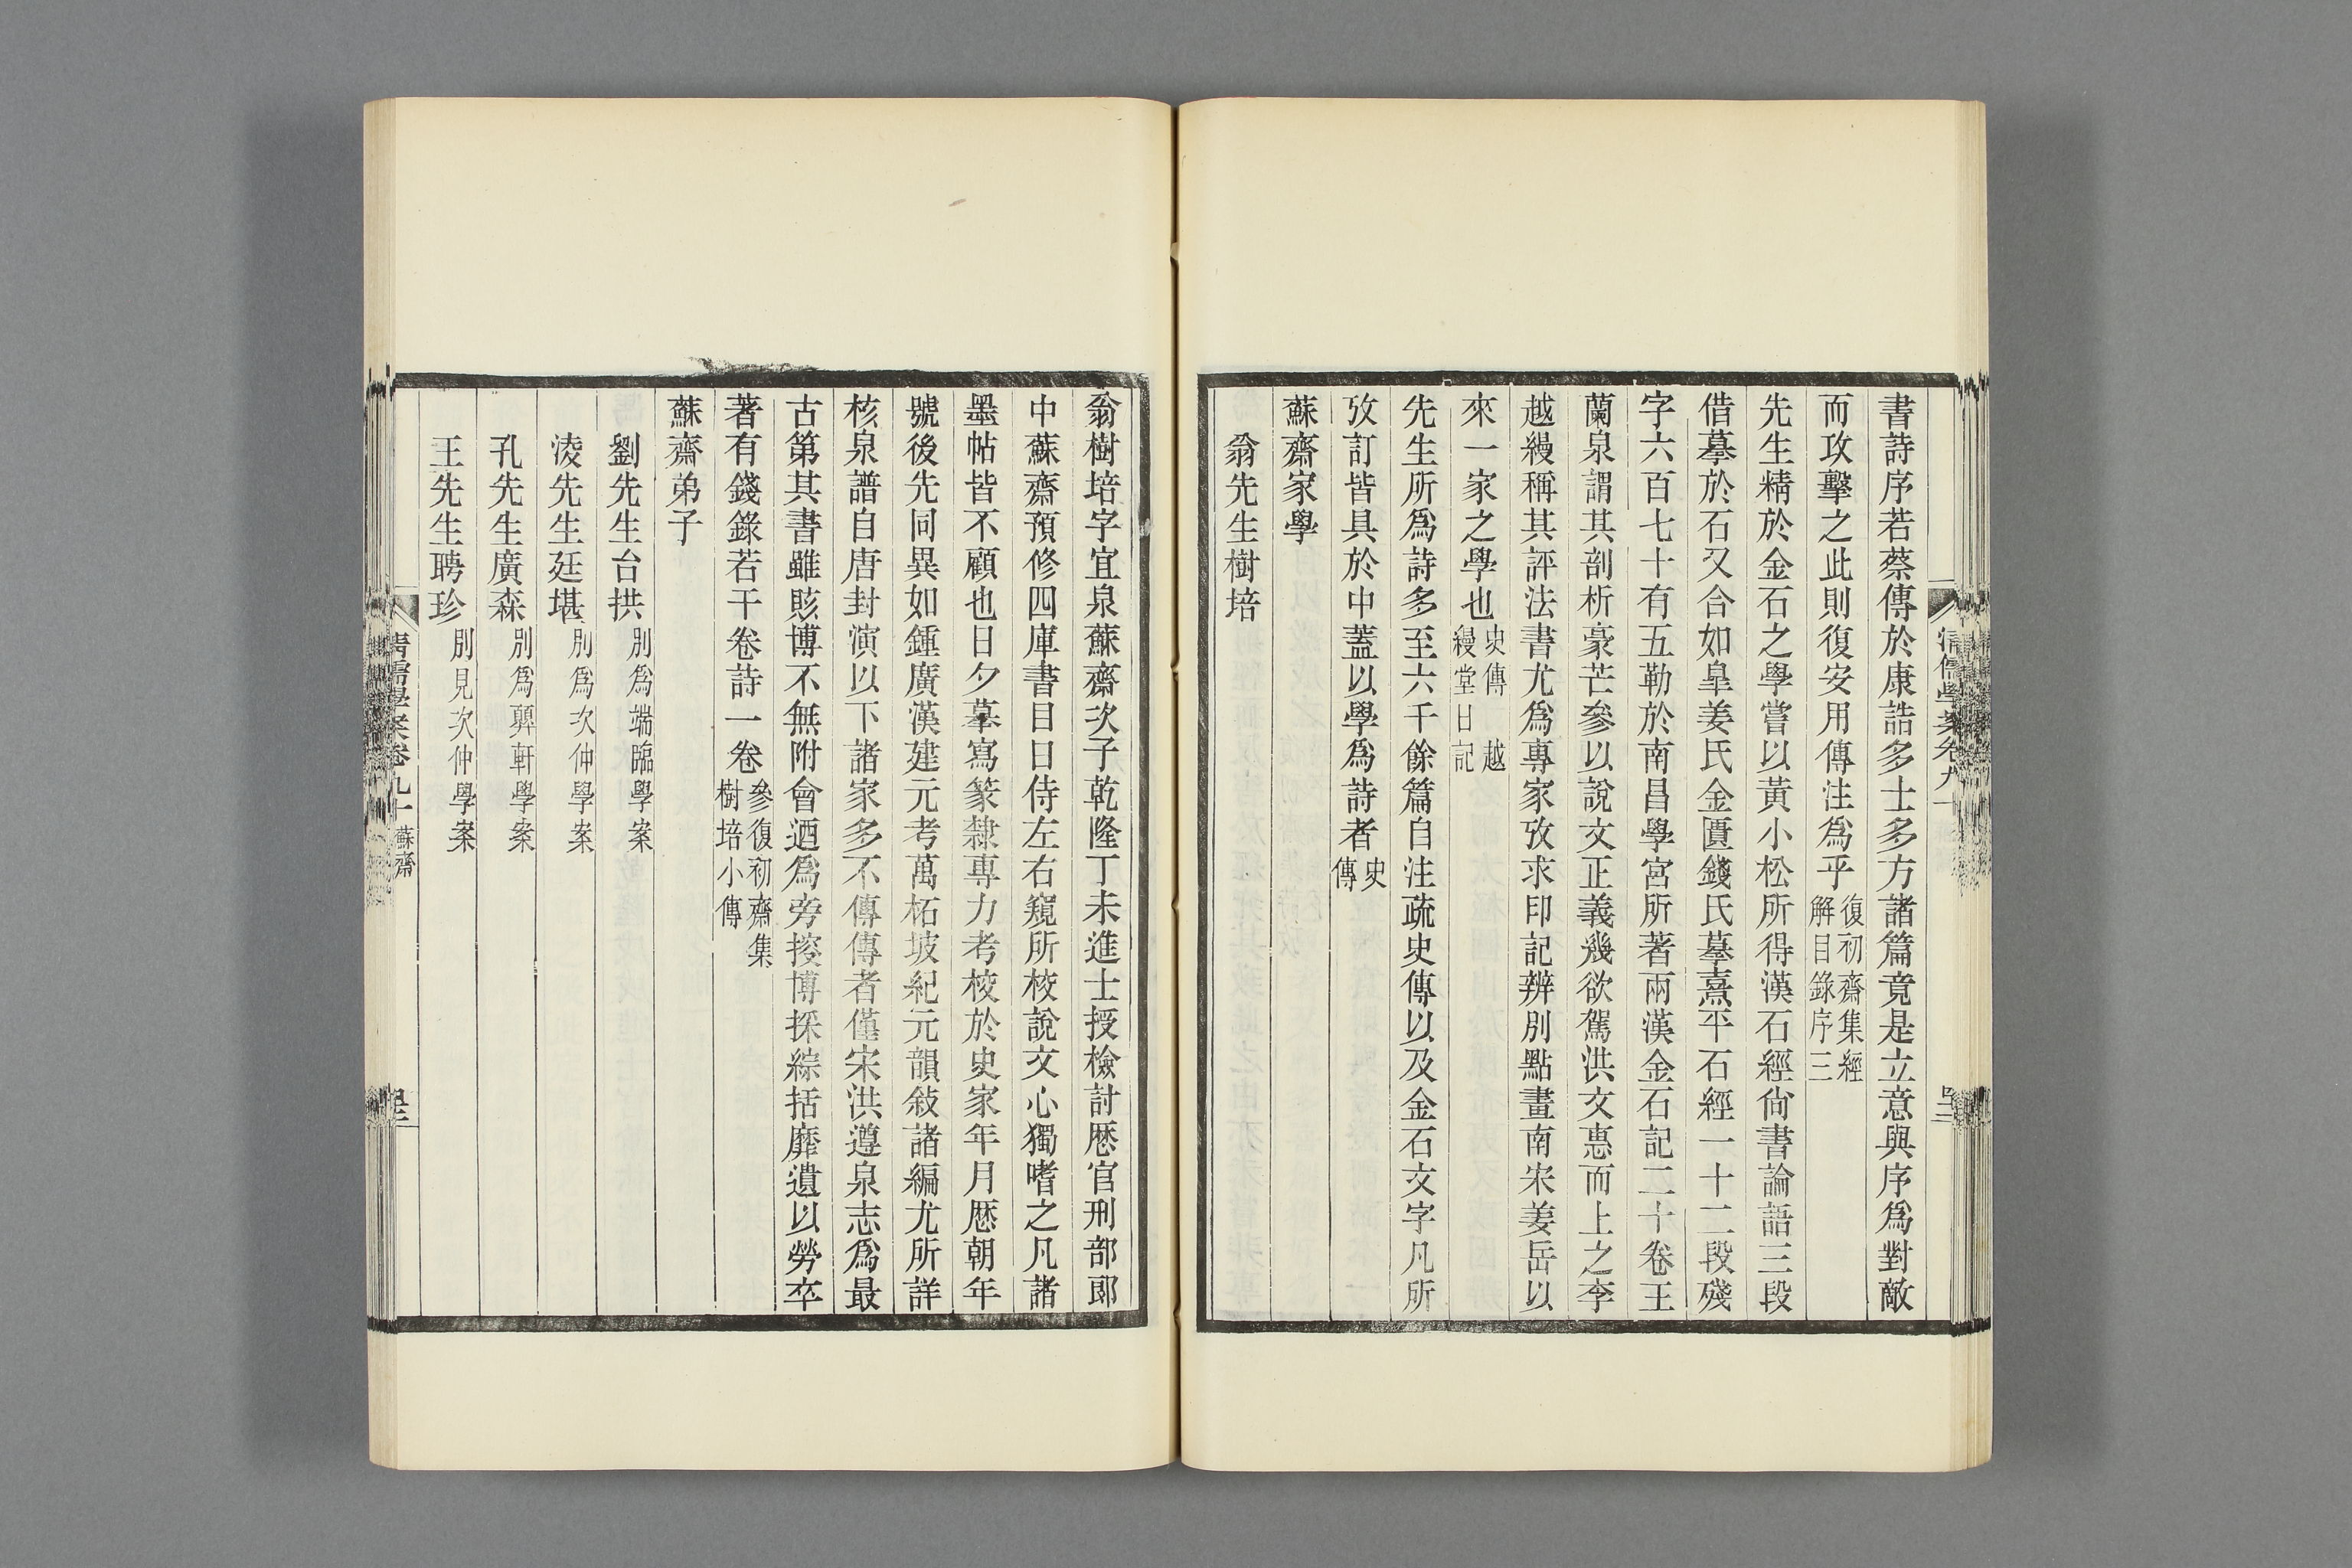 書詩序若蔡傳於康誥多士多方諸篇竟是立意與序爲對敵
而攻擊之此則復安用傳注爲乎復初齋集經解目錄序三
先生精於金石之學嘗以黃小松所得漢石經尙書論語三段
借摹於石又合如皐姜氏金匱錢氏摹熹平石經一十二段殘
字六百七十有五勒於南昌學宮所著兩漢金石記二十卷王
蘭泉謂其剖析豪芒參以說文正義幾欲駕洪文惠而上之李
越縵稱其評法書尤爲專家攷求印記辨別點畫南宋姜岳以
來一家之學也史傳 越縵堂日記
先生所爲詩多至六千餘篇自注疏史傳以及金石文字凡所
攷訂皆具於中蓋以學爲詩者史傳
蘇齋家學
翁先生樹培
翁樹培字宜泉蘇齋次子乾隆丁未進士授檢討歷官刑部郎
中蘇齋預修四庫書目日侍左右窺所校說文心獨嗜之凡諸
墨帖皆不顧也日夕摹寫篆隸專力考校於史家年月歷朝年
號後先同異如鍾廣漢建元考萬柘坡紀元韻敍諸編尤所詳
核泉譜自唐封演以下諸家多不傳傳者僅宋洪遵泉志爲最
古第其書雖賅博不無附會迺爲旁搜博採綜括靡遺以勞卒
著有錢錄若干卷詩一卷參復初齋集樹培小傳
蘇齋弟子
劉先生台拱別爲端臨學案
淩先生廷堪別爲次仲學案
孔先生廣森別爲顨軒學案
王先生聘珍別見次仲學案
清儒學案卷九十 蘇齋